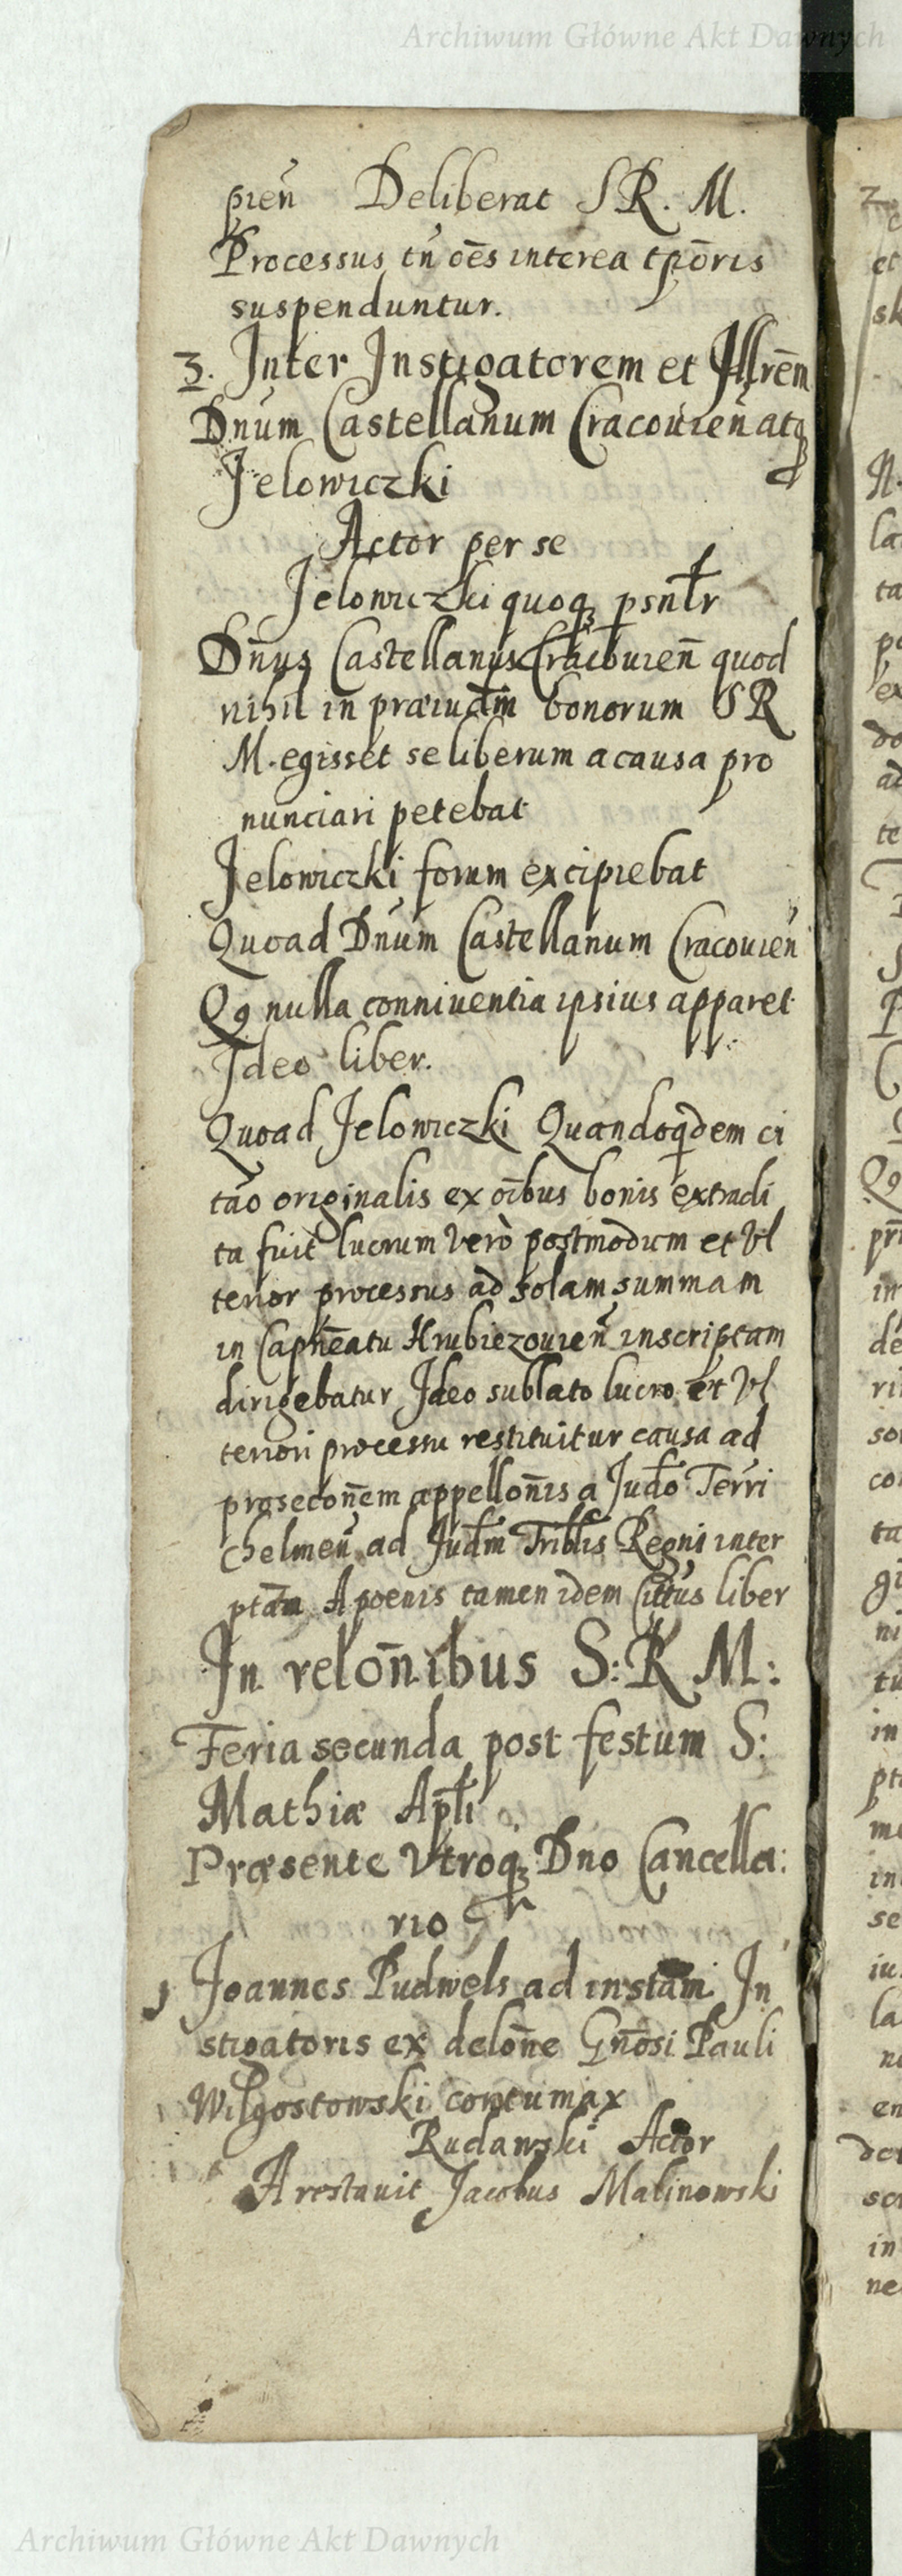 Archiwum Główne Akt Dawnych
pień Deliberat S R. M.
Processus tñ oēs interea tpōris
suspenduntur.
3. Inter Instigatorem et Illrēm
Dnūm Castellanum Cracouień atq
Jelowiczki
Actor per se
Jelowiczki quoq psntr
Dn̄us Castellanus Cracouień quod
nihil in præiudm bonorum S R
M. egisset se liberum a causa pro
nunciari petebat
Jelowiczki forum excipiebat
Quoad Dnūm Castellanum Cracouień
Qꝯ nulla conniuentia ipsius apparet
Ideo liber.
Quoad Jelowiczki Quandoqdem ci
tāo originalis ex oībus bonis extradi
ta fuit lucrum verò postmodum et Vl
terior processus ad solam summam
in Capnēatu Hrubiezouień inscriptam
dirigebatur Ideo sublato lucro et Vl
teriori processu restituitur causa ad
proseconēm appellon̄is a Judō Terri
Chelmeń ad Judm Tribtis Regni inter
ptam A poenis tamen idem Cittus liber
In relon̄ibus S: R M:
Feria secunda post festum S:
Mathiæ Apli
Præsente Vtroq Dno Cancella:
rio
1 Joannes Pudwels ad instam In
stigatoris ex delon̄e Gn̄osi Pauli
Wilgostowski contumax
Rudawski Actor
Arestauit Jacobus Malinowski
Archiwum Główne Akt Dawnych